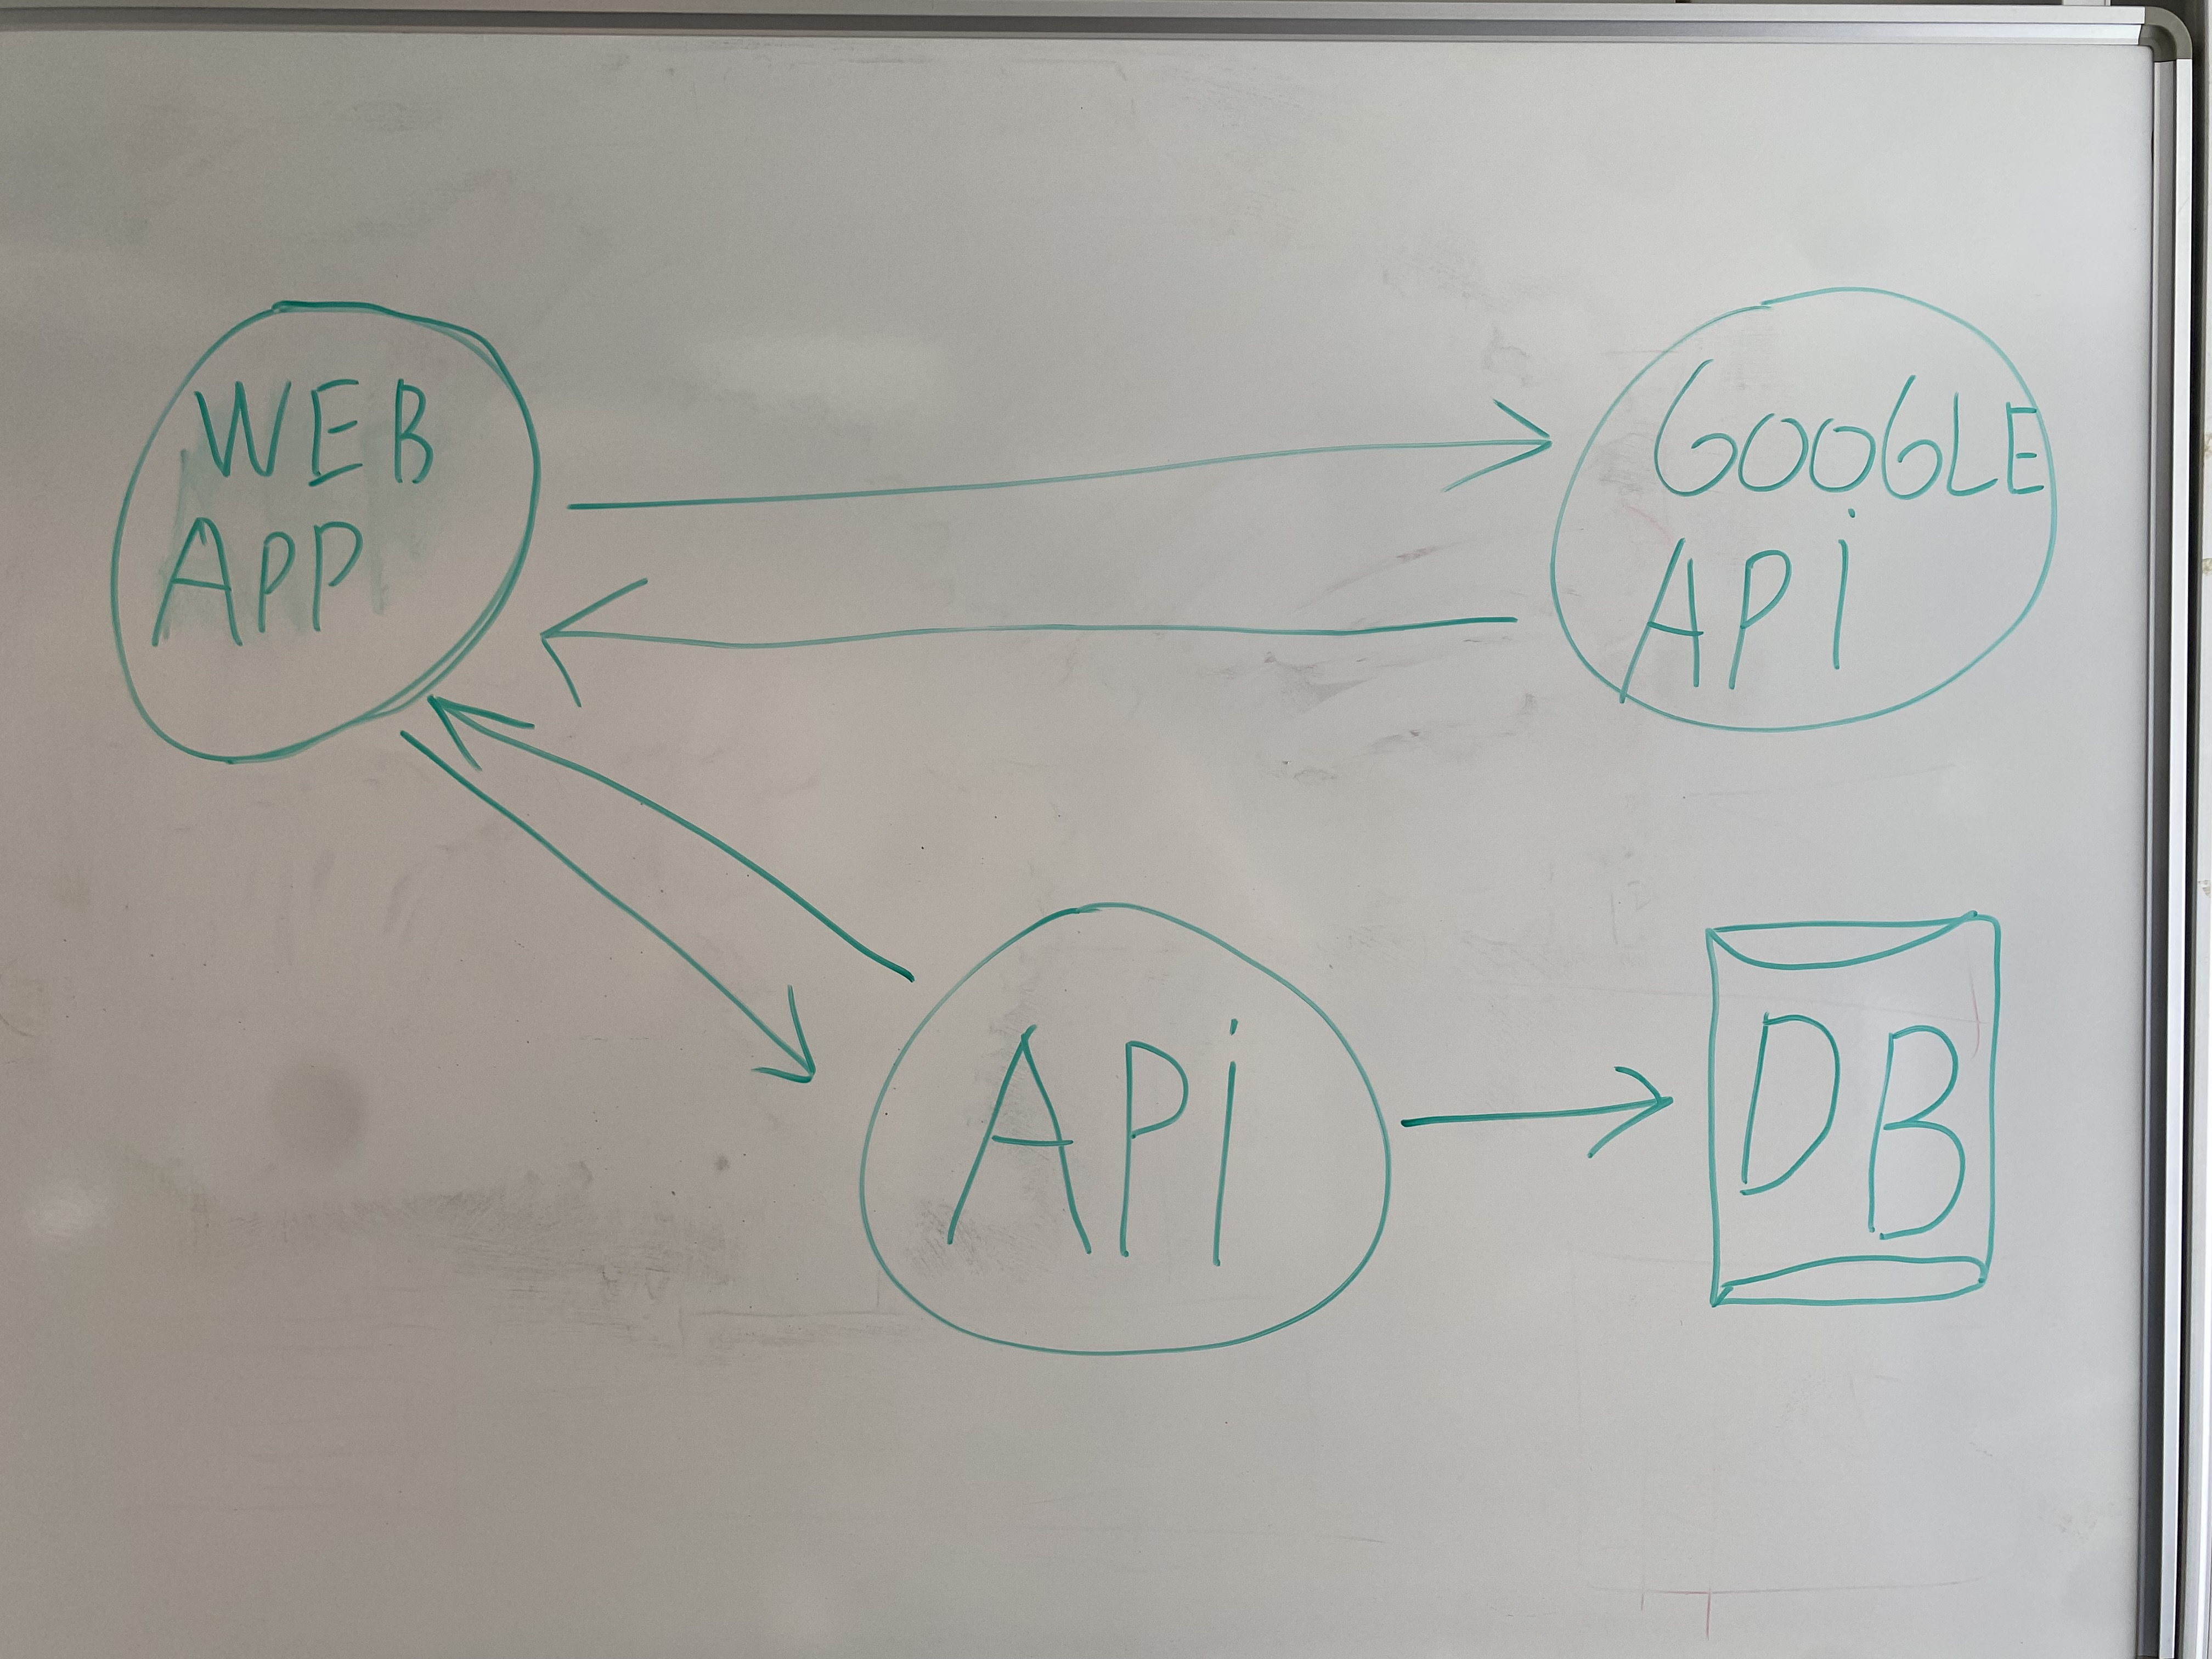 WEB
APP
GOOGLE
APi
APi
DB